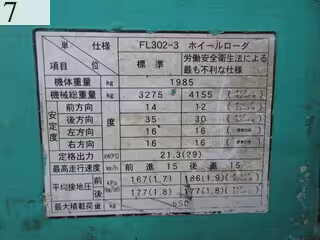 7
単位 仕様 FL302-3 ホイールローダ
項目 標準 労働安全衛生法による
最も不利な仕様
機体重量 kg 1985
機械総重量 kg 3275 4155
安定度 前方向 度 14 12
後方向 35 30
左方向 16 16
右方向 16 16
定格出力 kW(PS) 21.3(29)
最高走行速度 km/h 前進15 後進15
平均接地圧 前 kPa 167(1.7) 186(1.9)
後 177(1.8) 177(1.8)
最大積載荷重 kg 550